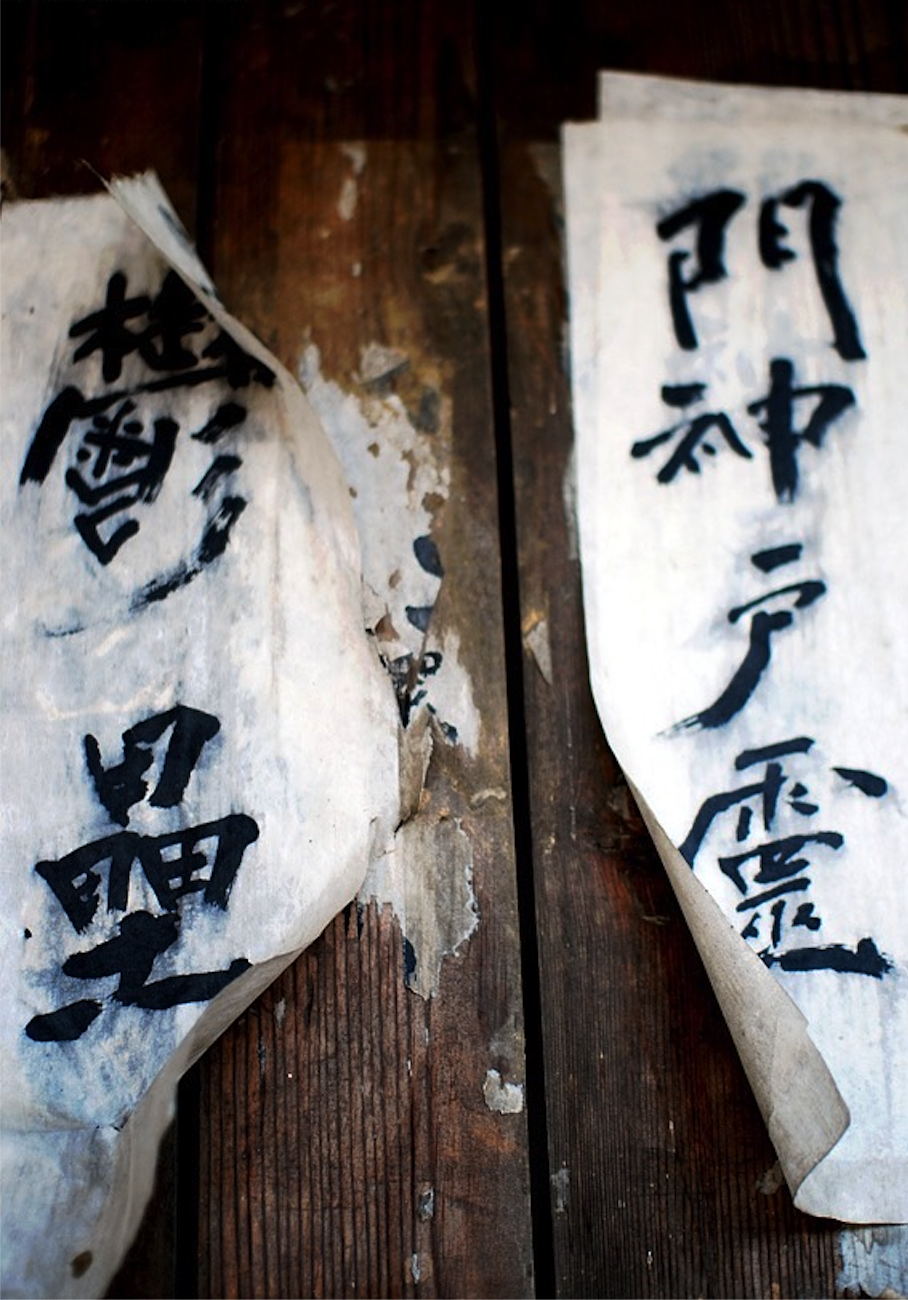 門神戶靈
鬱壘